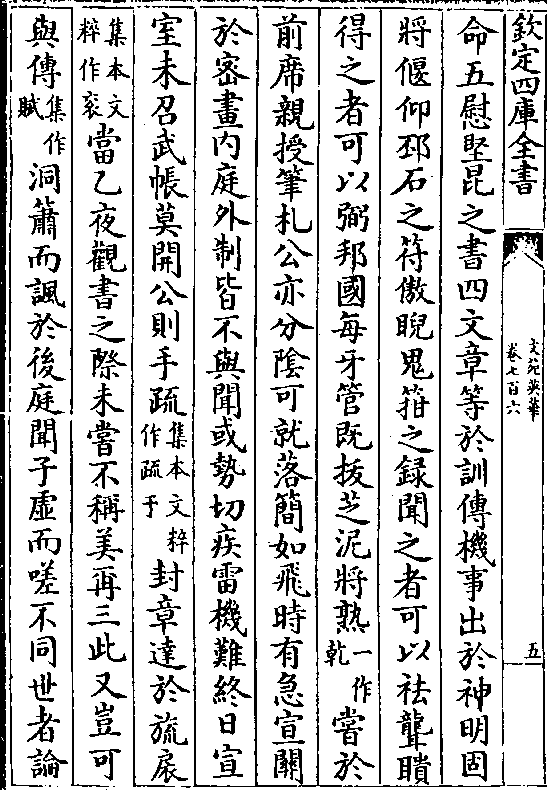 欽定四庫全書
文苑英華
卷七百六
五
命五慰堅昆之書四文章等於訓傳機事出於神明固
將偃仰邳石之符傲睨鬼箝之録聞之者可以祛聾聵
得之者可以弼邦國每牙管既拔芝泥將熟一作乾嘗於
前席親授筆札公亦分陰可就落簡如飛時有急宣關
於密畫内庭外制皆不與聞或勢切疾雷機難終日宣
室未召武帳莫開公則手疏集本文粹作疏于封章達於旒扆
集本文粹作衮當乙夜觀書之際未嘗不稱美再三此又豈可
與傳集作賦洞簫而諷於後庭聞子虛而嗟不同世者論